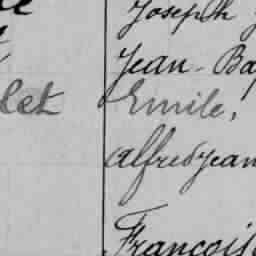 Joseph
Jean - Ba
let Emile,
alfred jean
François